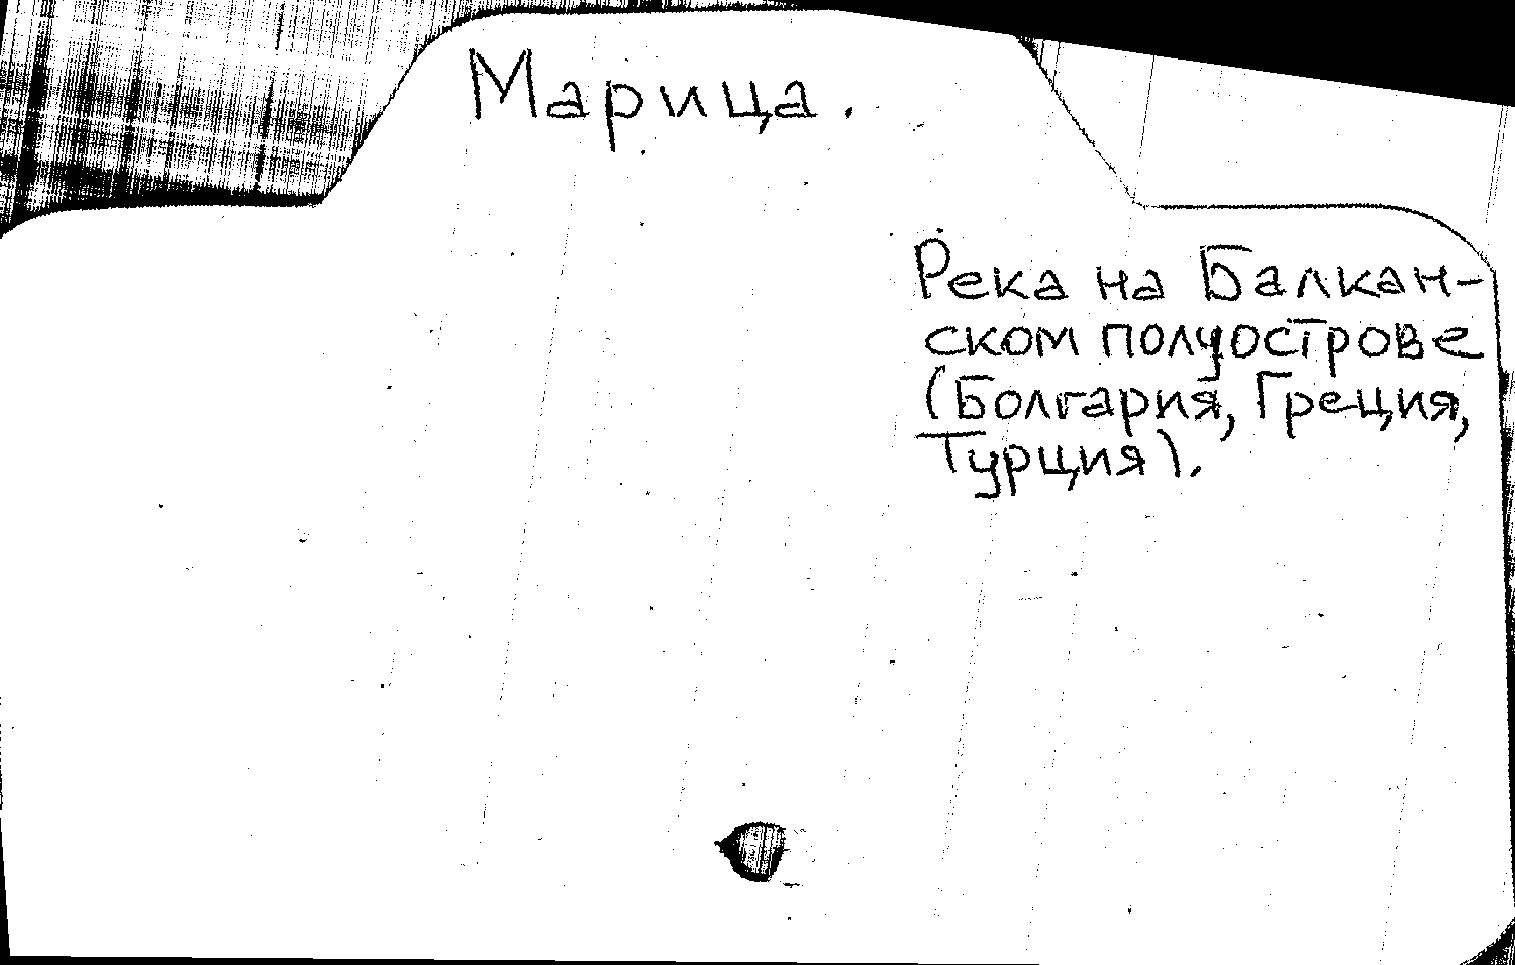 Марица.
Река на Балкан-
ском полуострове
(Болгария, Греция,
Турция).